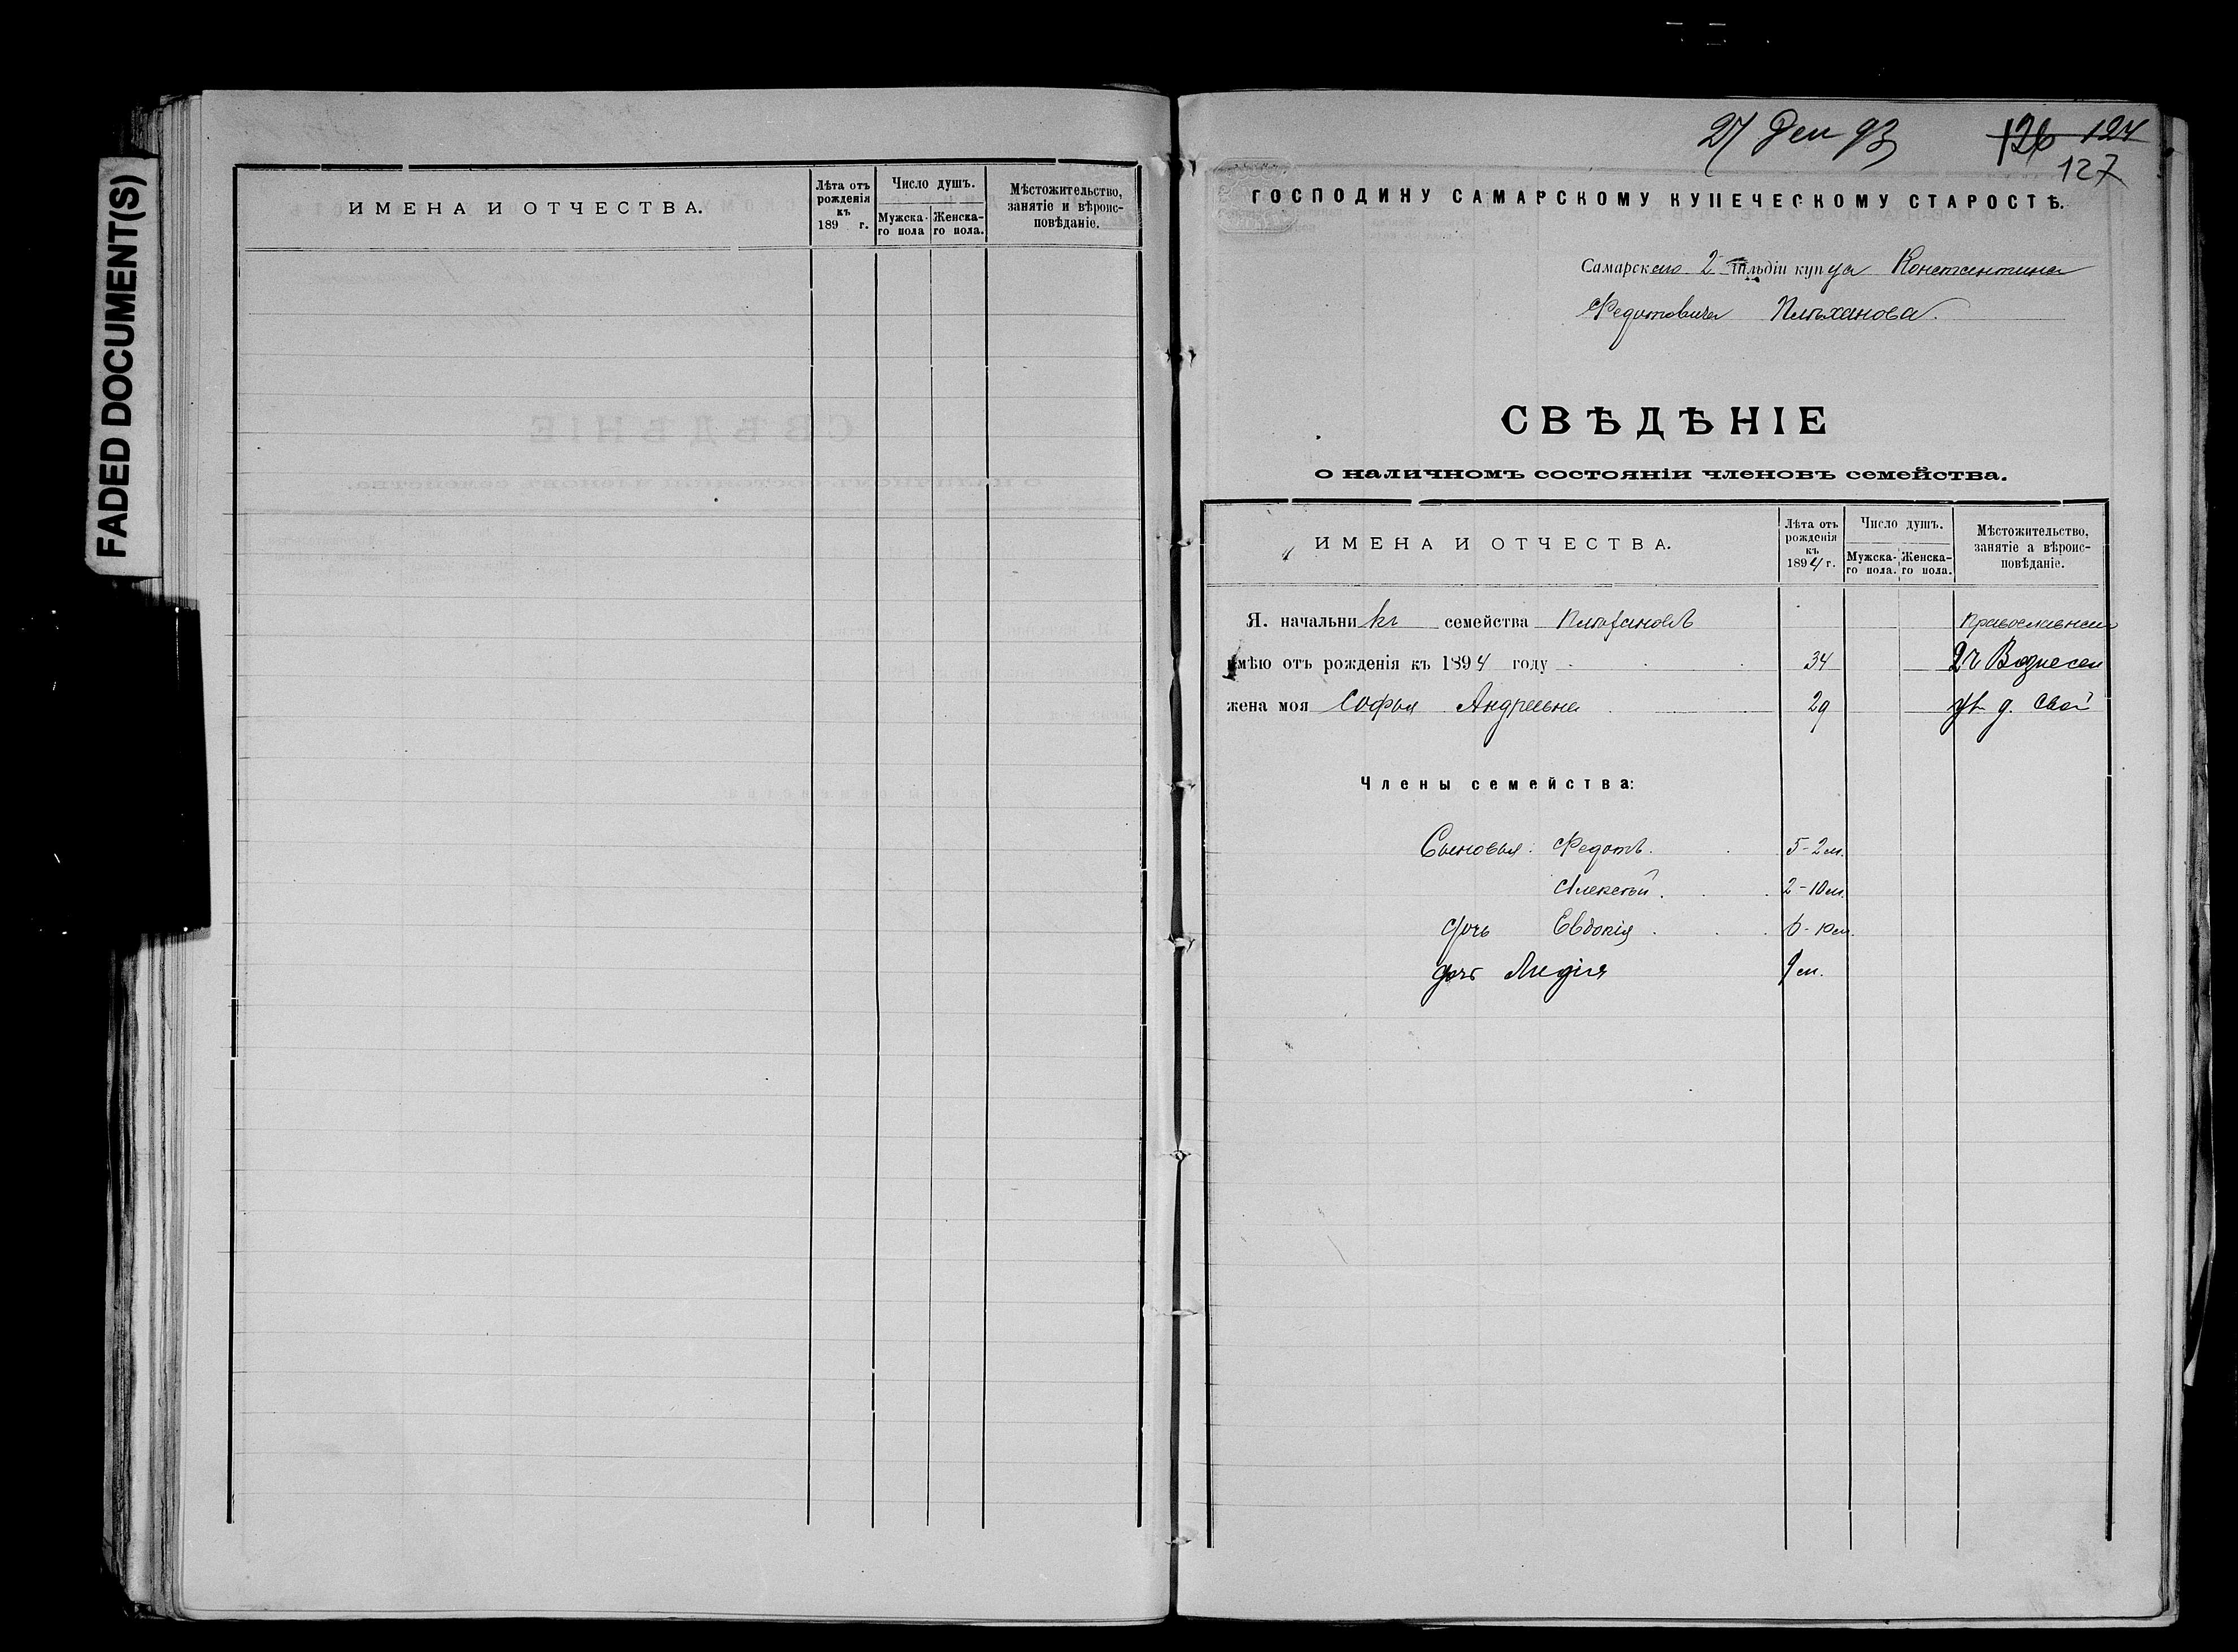 FADED DOCUMENT(S)
ИМЕНА И ОТЧЕСТВА.
Лѣта отъ рожденія къ 189 г.
Число душъ.
Мужска-го пола
Женска-го пола.
Мѣстожительство, занятіе и вѣроис-повѣданіе.
27 Дек 93
126 124
127
ГОСПОДИНУ САМАРСКОМУ КУПЕЧЕСКОМУ СТАРОСТѢ.
Самарскаго 2 гильдіи купца Константина
Федотовича Плеханова.
СВѢДѢНІЕ
о наличномъ состояніи членовъ семейства.
ИМЕНА И ОТЧЕСТВА.
Лѣта отъ рожденія къ 1894 г.
Число душъ.
Мужска-го пола.
Женска-го пола.
Мѣстожительство, занятіе а вѣроис-повѣданіе.
Я. начальникъ семейства Плехановъ Православная
имѣю отъ рожденія къ 1894 году 34 2 ч Вознесен
жена моя Софья Андреевна 29 д. свой
Члены семейства:
Сыновья: Федотъ. 5-2 м.
Алексѣй. 2-10 м.
дочь Евдокія 6-10 м.
дочь Лидія 9 м.